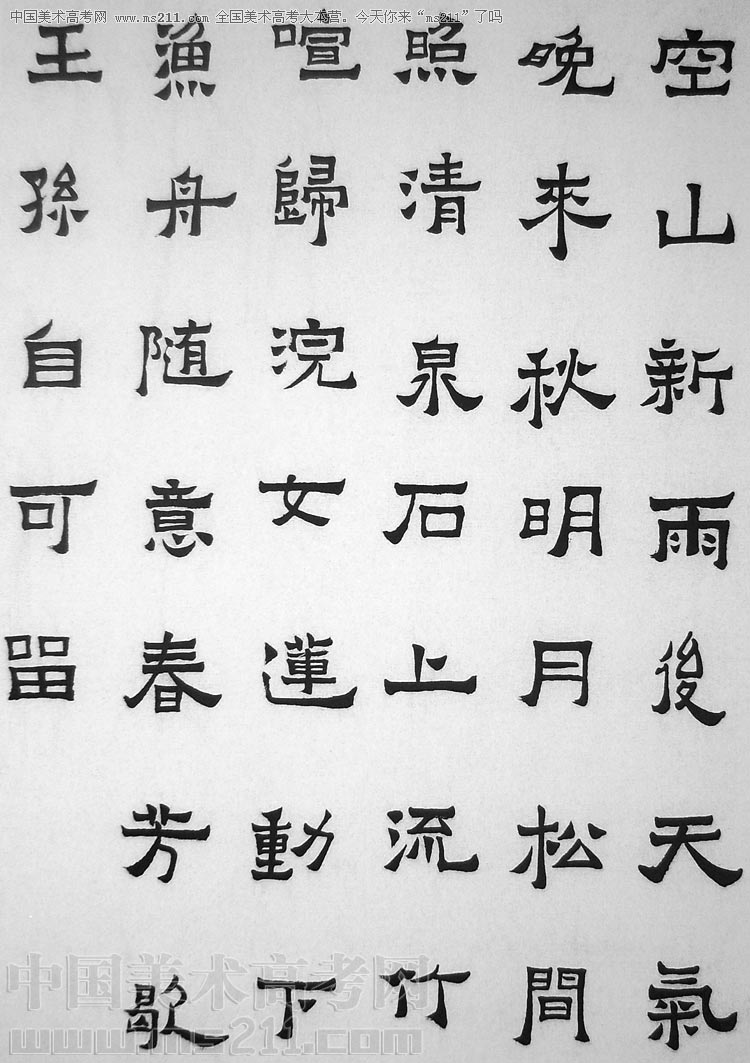 中国美术高考网 www.ms211.com 全国美术高考大本营。今天你来“ms211”了吗
空山新雨後天氣
晚來秋明月松間
照清泉石上流竹
喧歸浣女蓮動下
漁舟随意春芳歇
王孫自可留
中国美术高考网
www.ms211.com